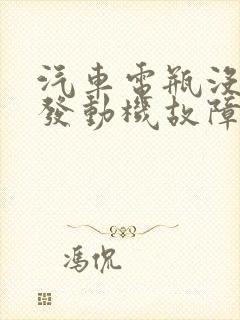 汽車電瓶沒
發動機故障
馮侃